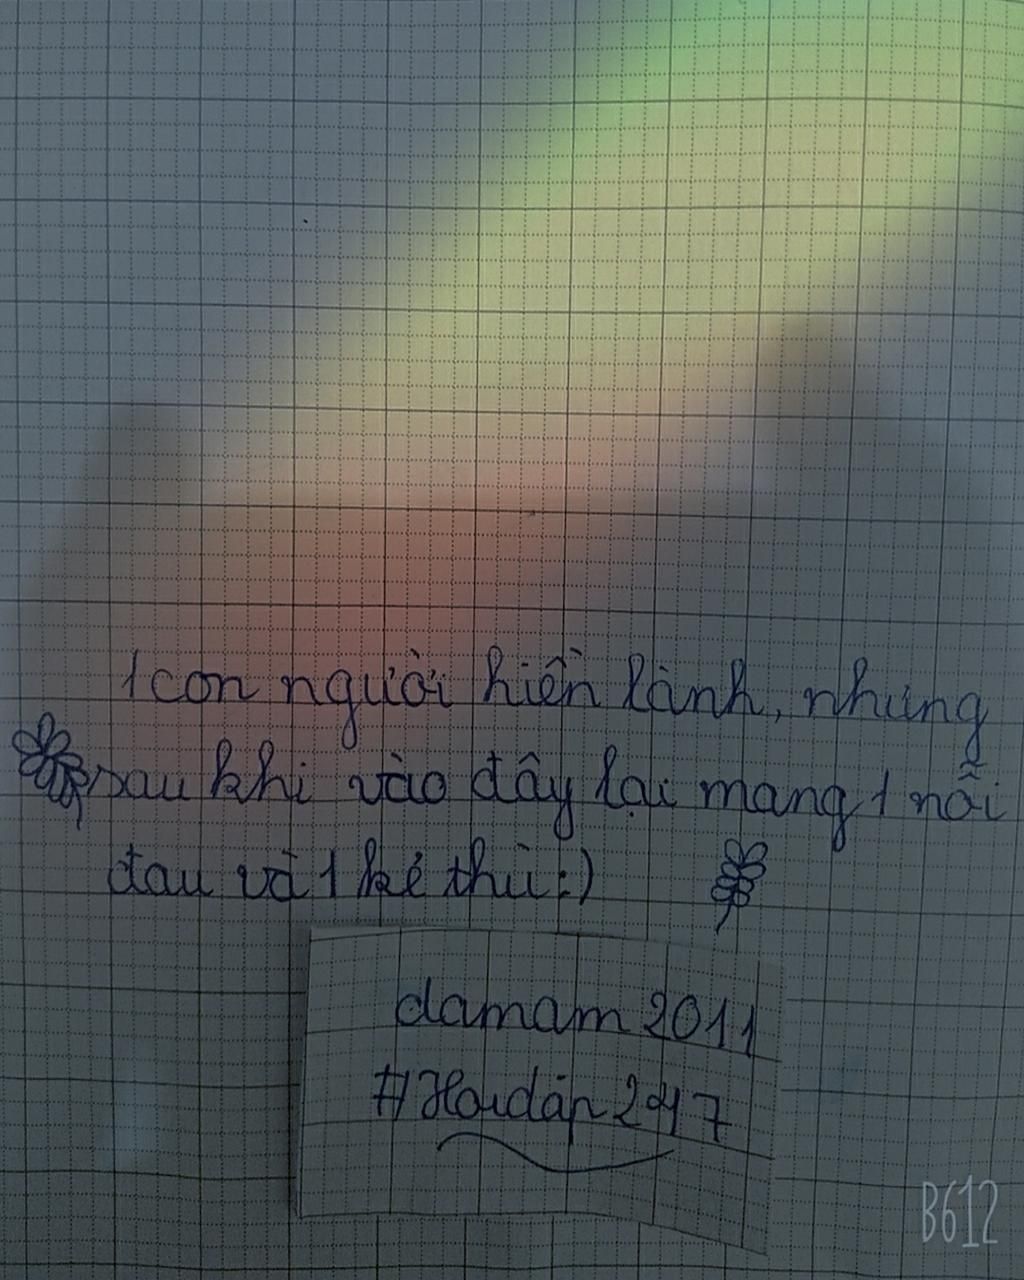 1 con người hiền lành, nhưng
sau khi vào đây lại mang 1 nỗi
đau và 1 kẻ thù :)
damam 2011
#Hoidáp 247
B612